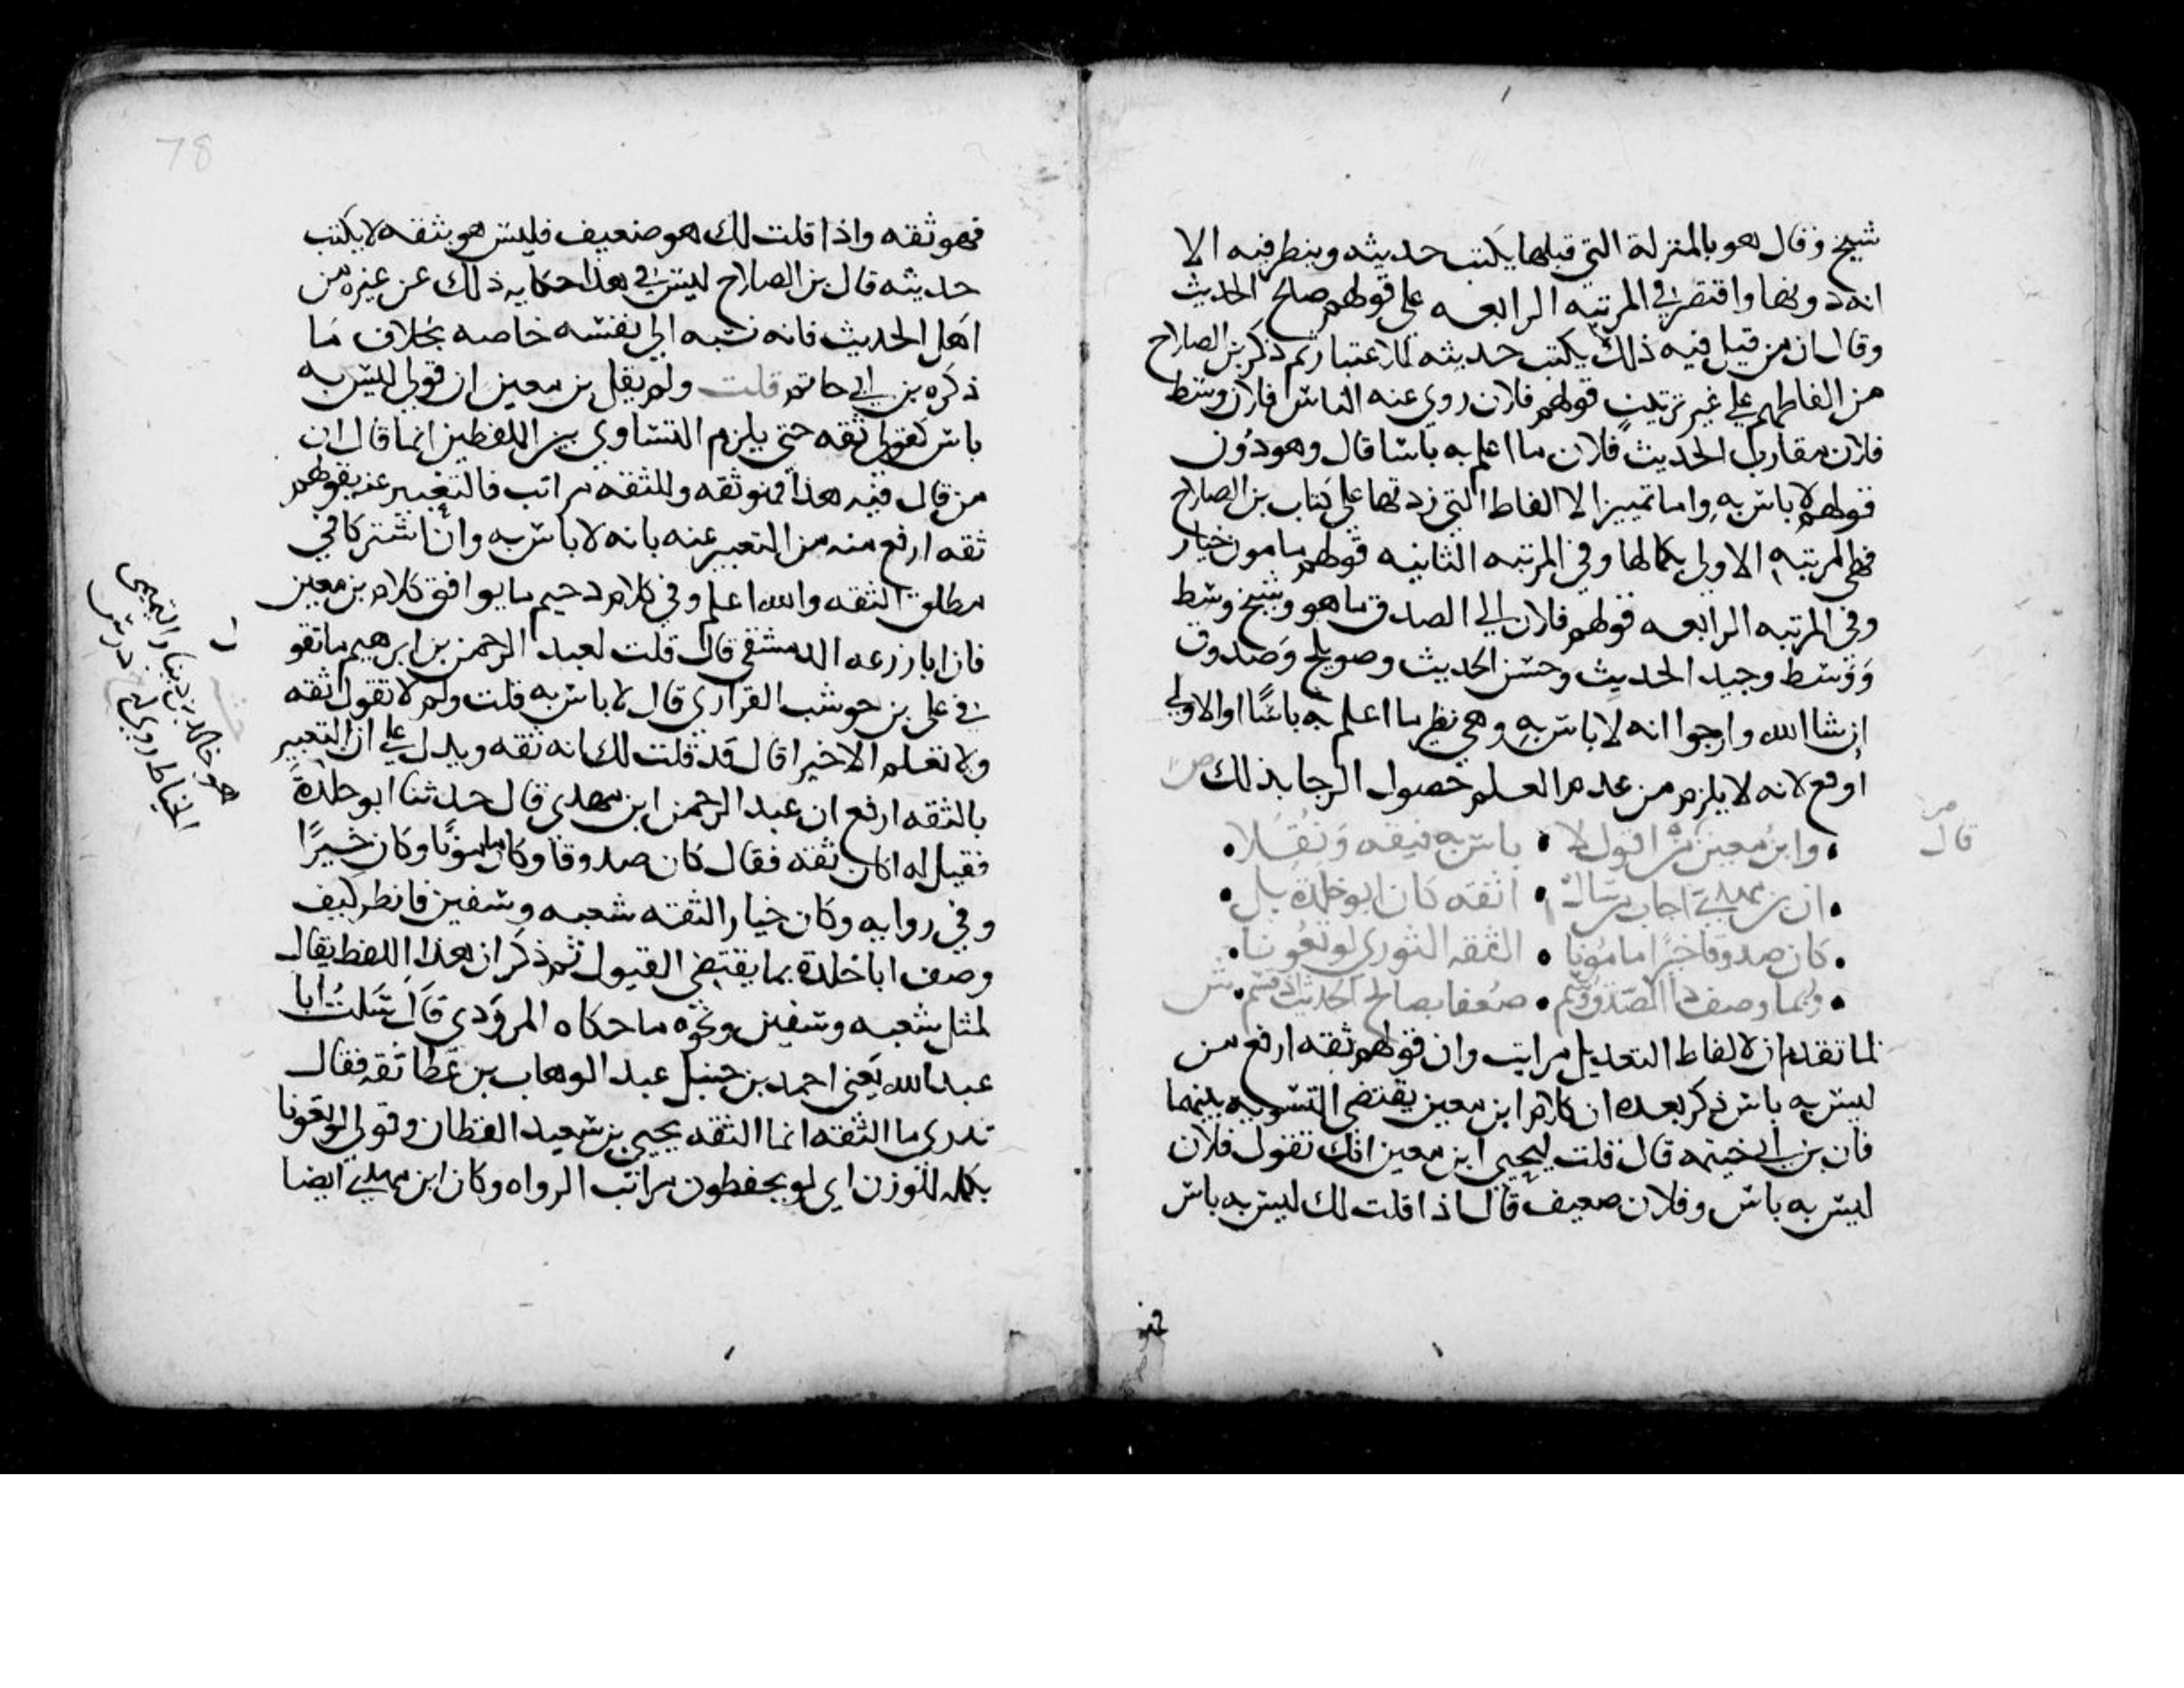 شيخ وقال هو بالمنزلة التي قبلها يكتب حديثه وينظر فيه الا
انه دونها واقتصر في المرتبه الرابعه على قولهم صالح الحديث
وقال ان من قيل فيه ذلك يكتب حديثه للاعتبار ثم ذكر بن الصلاح
من الفاظهم علي غير ترتيب قولهم فلان روي عنه الناس فلان وسط
فلان مقارب الحديث فلان ما اعلم به باسا قال وهو دون
قولهم لا باس به واما تمييز الالفاظ التي زدتها على كتاب بن الصلاح
فهي المرتبه الاولي بكمالها وفي المرتبه الثانيه قولهم مامون خيار
وفي المرتبه الرابعه قولهم فلان الي الصدق ما هو وشيخ وسط
وَوَسط وجيد الحديث وحسَن الحديث وصويلح وَصَدوق
ان شا الله وارجوا انه لا باس به وهي نظير ما اعلم به باسًا او الاولي
ارفع لانه لا يلزم من عدم العلم حصول الرجا بذلك ص
قال
وابنُ معين قال من اقول لا • باس به فثقه وَنُقِلا
ان بن مهدي اجاب من سال • اثقه كان ابو خلدة بل
كان صدوقا خيرًا مامونا • الثقه الثوري لو تعُونا
وربما وصف ذا الصدق وسم • ضعفا بصالح الحديث اذ يسم ش
لما تقدم ان لالفاظ التعديل مراتب وان قولهم ثقه ارفع من
ليس به باس ذكر بعده ان كلام ابن معين يقتضي التسويه بينهما
فان بن ابي خيثمه قال قلت ليحيى ابن معين انك تقول فلان
ليس به باس وفلان ضعيف قال اذا قلت لك ليس به باس
فهو ثقه واذا قلت لك هو ضعيف فليس هو بثقه لا يكتب
حديثه قال بن الصلاح ليس في هذا حكايه ذلك عن غيره من
اهل الحديث فانه نسبه الي نفسه خاصه بخلاف مَا
ذكره بن ابي حاتم قلت ولم يقل بن معين ان قولي ليس به
باس كقولي ثقه حتي يلزم التساوي بين اللفظين انما قال ان
من قال فيه هذا فهو ثقه وللثقه مراتب فالتعبير عنه بقولهم
ثقه ارفع منه من التعبير عنه بانه لا باس به وان اشتركا في
مطلق الثقه والله اعلم وفي كلام دحيم ما يوافق كلام بن معين
فان ابا زرعه الدمشقي قال قلت لعبد الرحمن بن ابرهيم ما تقو
في علي بن حوشب الفزاري قال لا باس به قلت ولم لا تقول ثقه
ولا نعلم الا خيرا قال قد قلت لك انه ثقه ويدل علي ان التعبير
بالثقه ارفع ان عبد الرحمن ابن مهدي قال حدثنا ابو خلدة
فقيل له اكان ثقه فقال كان صدوقا وكان مامونًا وكان خيرًا
وفي روايه وكان خيار الثقه شعبه وسفين فانظر كيف
وصف ابا خلدة بما يقتضي القبول ثم ذكر ان هذا اللفظ يقال
لمثل شعبه وسفين ونحوه ما حكاه المروذي قَالَ سَئلتُ ابا
عبد الله يَعني احمد بن حنبل عبد الوهاب بن عَطا ثقه فقال
تدري ما الثقه انما الثقه يحيى بن سعيد القطان وقولي لو تعونا
تكمله للوزن اي لو يحفظون مراتب الرواه وكان ابن مهدي ايضا
هو خالد بن دينار التميمي
الخياط روي
78